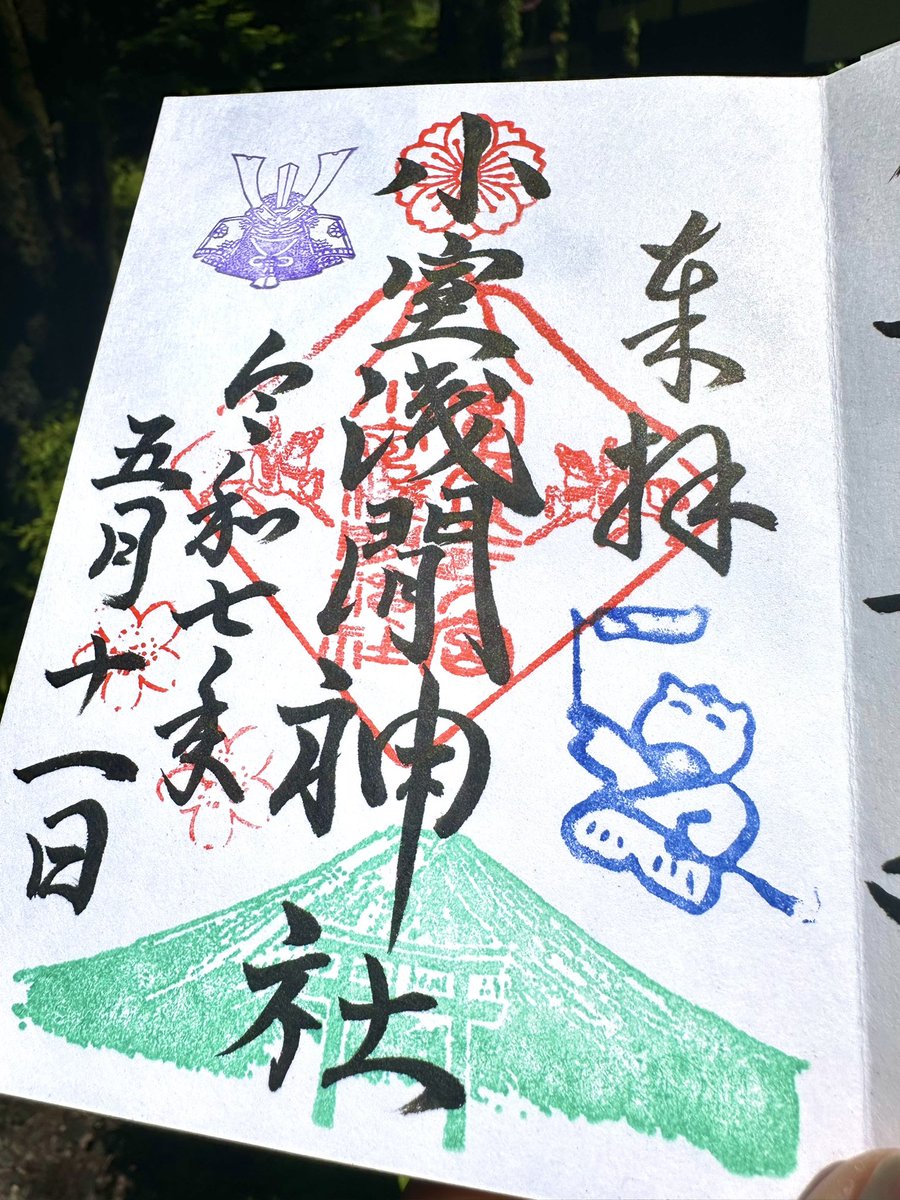 来拝
小室浅間神社
令和七年
五月十一日